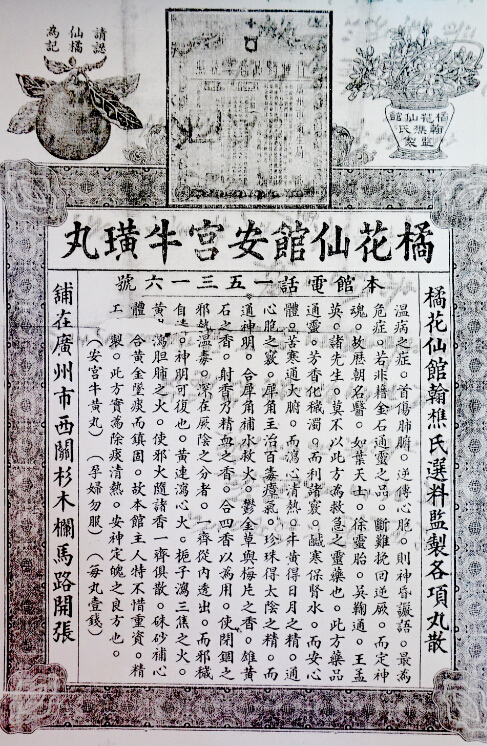 請認
仙橘
為記
橘花仙館
翰樵氏
監製
橘花仙館安宮牛璜丸
本館電話一五三一六號
橘花仙館翰樵氏選料監製各項丸散
溫病之症。首傷肺腑。逆傳心胞。則神昏譫語。最為
危症。若非藉金石通靈之品。斷難挽回逆厥。而定神
魂。故歷朝名醫。如葉天士。徐靈胎。吳鞠通。王孟
英。諸先生。莫不以此方為救急之靈藥也。此方藥品
通靈。芳香化穢濁。而利諸竅。鹹寒保腎水。而安心
體。苦寒通火腑。而瀉心清熱。牛黃得日月之精。通
心胞之竅。犀角主治百毒瘴氣。珍珠得太陰之精。而
通神明。合犀角補水救火。鬱金草與梅片之香。雄黃
石之香。射香乃精血之香。合四香以為用。使閉錮之
邪熱溫毒。深在厥陰之分者。一齊從內透出。而邪穢
自清。神明可復也。黃連瀉心火。梔子瀉三焦之火。
黃芩瀉胆肺之火。使邪火隨諸香一齊俱散。硃砂補心
體。合黃金墜痰而鎮固。故本館主人特不惜重資。精
工製。此方實為除痰清熱。安神定魄之良方也。
（安宮牛黃丸）（孕婦勿服）（每丸壹錢）
舖在廣州市西關杉木欄馬路開張